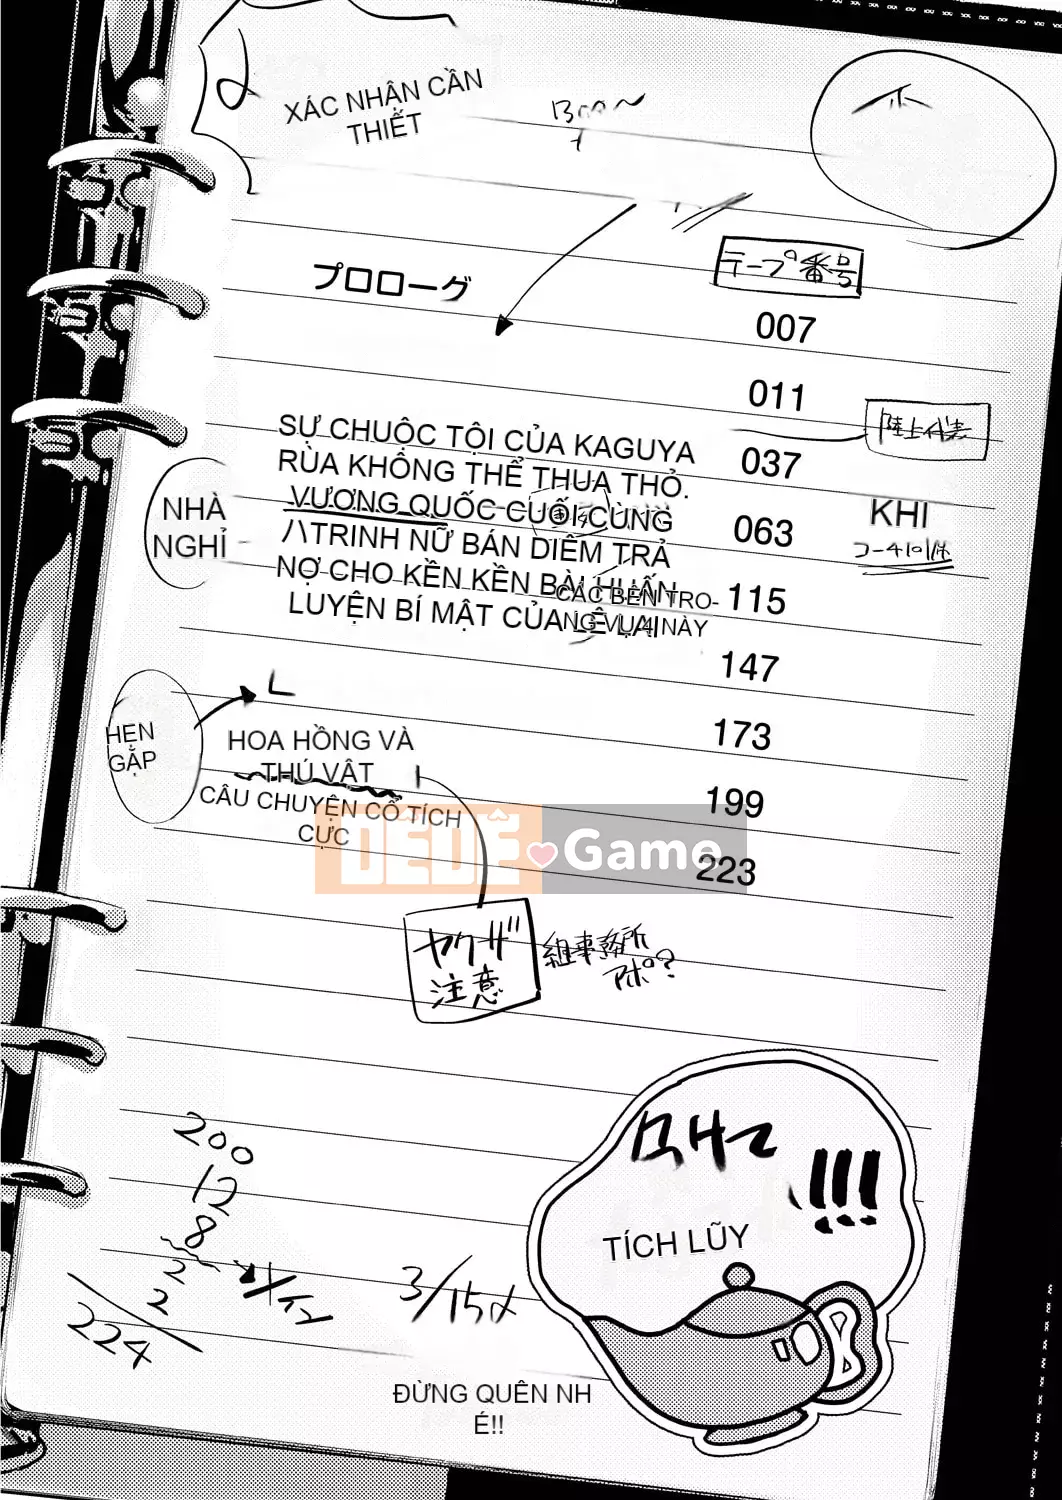 XÁC NHẬN CẦN
THIẾT
プロローグ
テープ番号
007
011
陸上代表
SỰ CHUỘC TỘI CỦA KAGUYA
037
RÙA KHÔNG THỂ THUA THỎ.
VƯƠNG QUỐC CUỐI CÙNG
063
KHI
NHÀ
NGHỈ
TRINH NỮ BÁN DIÊM TRẢ
NỢ CHO KỀN KỀN BÀI HUẤN
CÁC BÊN TRO-
115
LUYỆN BÍ MẬT CỦA LÊ LAI
NG VỤ 4 NÀY
147
173
HẸN
GẶP
HOA HỒNG VÀ
THÚ VẬT
199
CÂU CHUYỆN CỔ TÍCH
CỰC
DÊDÊ Game
223
ヤクザ
注意
組事務所
アポ?
200
12
8
2
2
224
3/15
!!!
TÍCH LŨY
ĐỪNG QUÊN NH
É!!